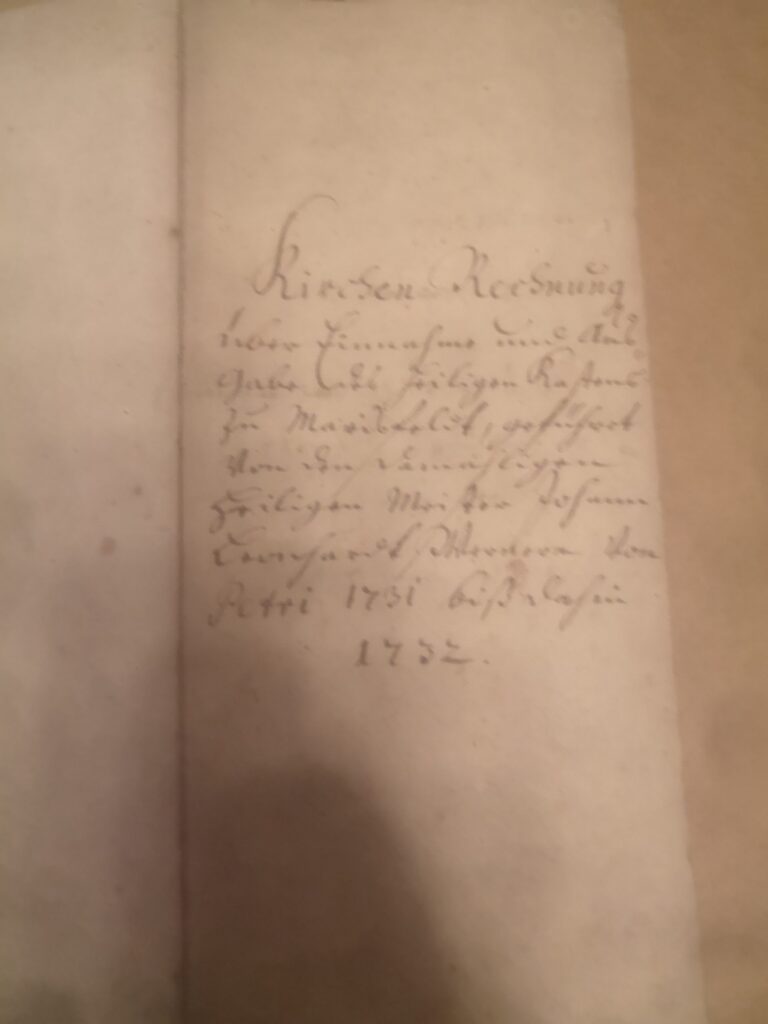 Kirchen Rechnung
über Einnahme und Aus
Gabe des heiligen Kastens
zu Marisfeldt, geführet
von den damahligen
Heiligen Meister Johann
Leonhardt Wernern von
Petri 1731 biß dahin
1732.